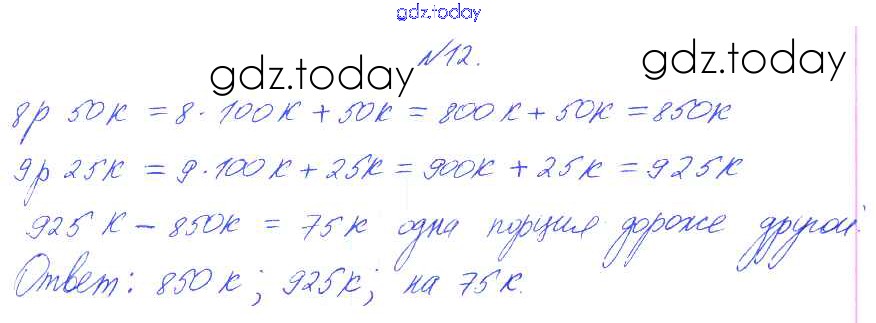 gdz.today
№12.
gdz.today gdz.today
8р 50к = 8·100к + 50к = 800к + 50к = 850к
9р 25к = 9·100к + 25к = 900к + 25к = 925к
925 к – 850к = 75к одна порция дороже другой.
Ответ: 850 к; 925к; на 75к.